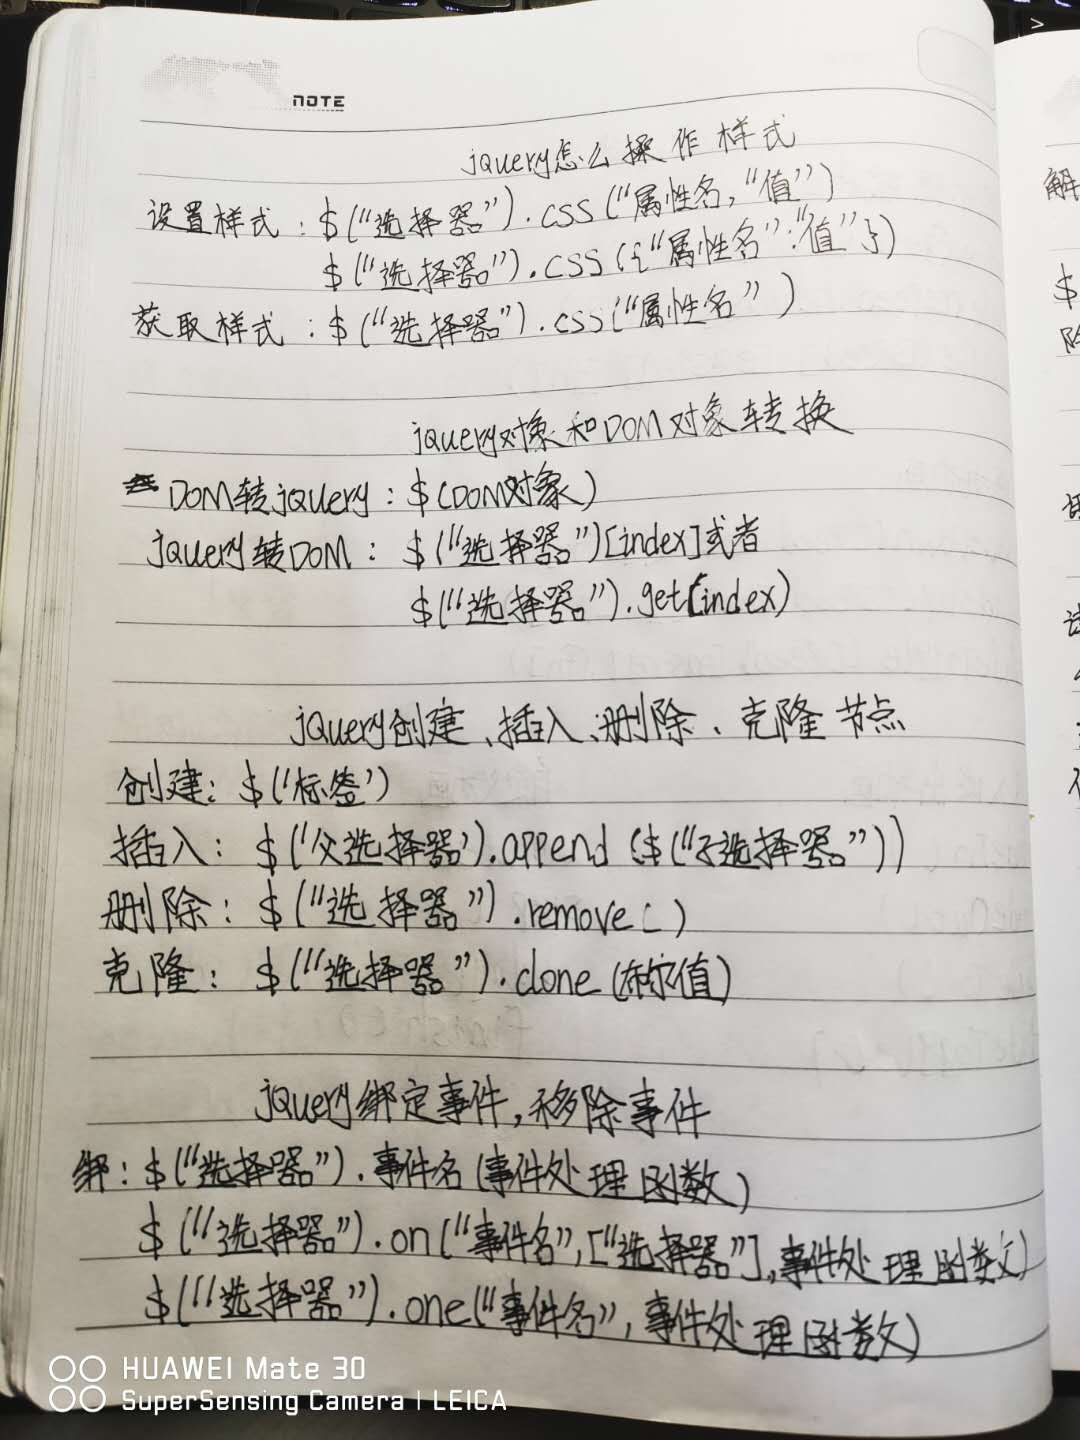 NOTE
jQuery怎么操作样式
设置样式：$("选择器").css("属性名,"值")
$("选择器").css({"属性名":"值"})
获取样式：$("选择器").css("属性名")
jQuery对象和DOM对象转换
DOM转jQuery：$(DOM对象)
jQuery转DOM：$("选择器")[index]或者
$("选择器").get(index)
jQuery创建、插入、删除、克隆节点
创建：$('标签')
插入：$('父选择器').append($("子选择器"))
删除：$("选择器").remove()
克隆：$("选择器").clone(布尔值)
jQuery绑定事件,移除事件
绑：$("选择器").事件名(事件处理函数)
$("选择器").on("事件名",["选择器"],事件处理函数)
$("选择器").one("事件名",事件处理函数)
解
$
除
HUAWEI Mate 30
SuperSensing Camera | LEICA